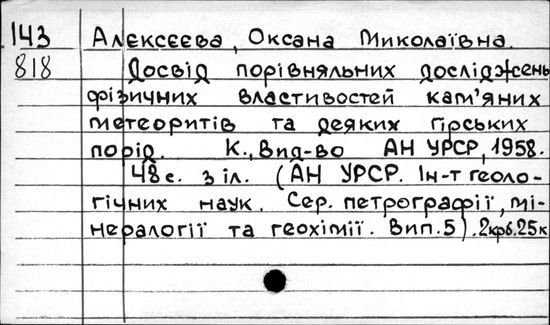 143 Алєксєєва, Оксана Миколаївна.
818 Досвід порівняльних досліджень
фізичних властивостей кам'яних
метеоритів та деяких гірських
порід. К., Вид-во АН УРСР, 1958.
48 с. з іл. (АН УРСР. Ін-т геоло-
гічних наук. Сер. петрографії, мі-
нералогії та геохімії. Вип. 5). 2крб.25к